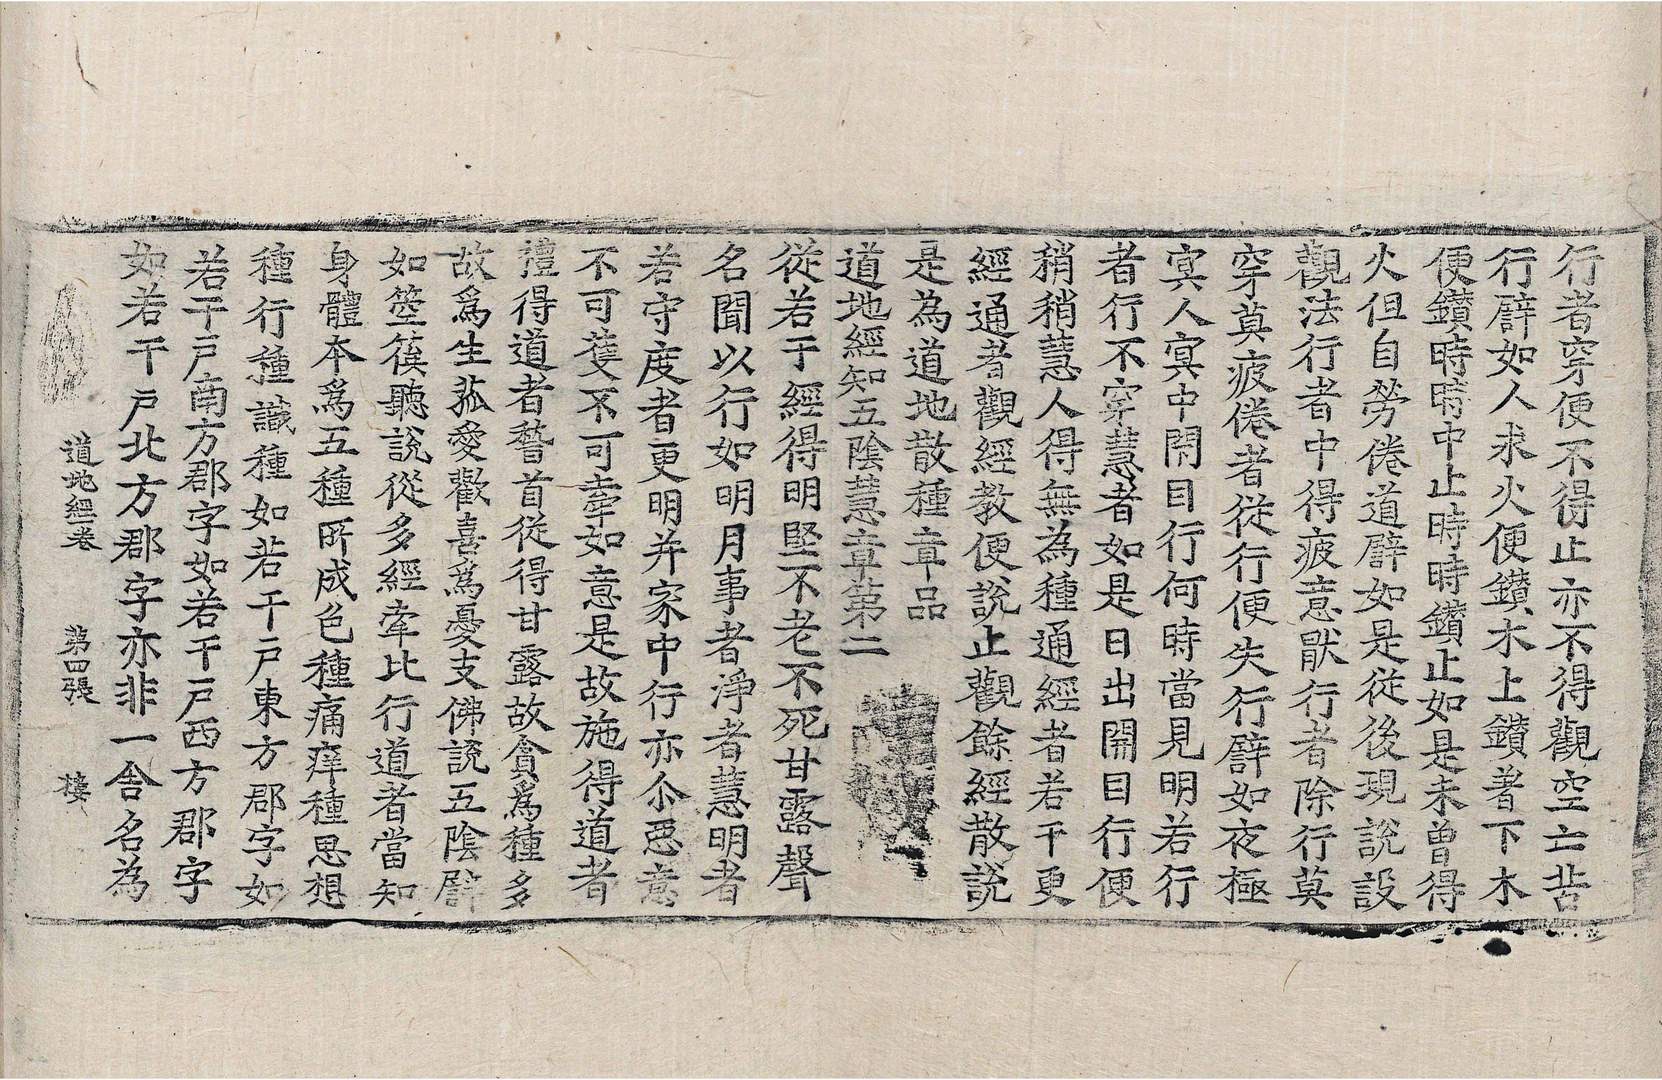 行者穿便不得止亦不得觀空亡苦
行譬如人求火便鑽木上鑽著下木
便鑽時時中止時時鑽止如是未曾得
火但自勞倦道譬如是從後現說設
觀法行者中得疲意猒行者除行莫
穿莫疲倦者從行便失行譬如夜極
冥人冥中閉目行何時當見明若行
者行不穿慧者如是日出開目行便
稍稍慧人得無為種通經者若干更
經通者觀經教便說止觀餘經散說
是為道地散種章品
道地經知五陰慧章第二
從若干經得明堅不老不死甘露聲
名聞以行如明月事者淨者慧明者
若守度者更明并家中行亦尒惡意
不可䕶不可牽如意是故施得道者
禮得道者𥡴首從得甘露故貪爲種多
故爲生菰愛歡喜爲憂支佛說五陰譬
如箜篌聽說從多經牽比行道者當知
身體本爲五種所成色種痛痒種思想
種行種識種如若干戶東方郡字如
若干戶南方郡字如若干戶西方郡字
如若干戶北方郡字亦非一舍名為
道地經卷 第四張 樓